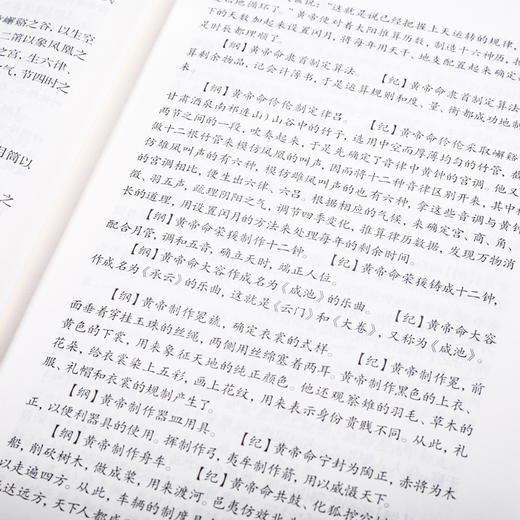 嶰谿之谷，以生空
二筩以象凤凰之
之宫，生六律、
气，节四时之
目筒以
之
就说：“这就是说已经把握上天运转的规律，
始地循环了。”黄帝便对着太阳推算历数，制造十六神历，
下的天数加起来设置闰月，将每年用天干、地支配置起来确定
是时长都理顺了。
【纲】黄帝命隶首制定算法。
【纪】黄帝命隶首制定算
算剩余物品，记会计薄书，于是运算规则和度、量、衡都成功地制
来
【纲】黄帝命伶伦制定律吕。
【纪】黄帝命伶伦采取嶰谿
甘肃酒泉南祁连山）山谷中的竹子，选用中空而厚薄均匀的竹管，截
两节之间的一段，吹奏起来，于是先确定了音律中黄钟的宫调。他又
做十二根竹管来模仿凤凰的叫声，因而将十二种音律区别开来，其中模
仿雄凤叫声的有六种，模仿雌凤叫声的也有六种，拿这些音调与黄钟
的宫调相比，便生出六律、六吕。根据相应的气候，来确定宫、商、角、
徵、羽五声，疏理阴阳之气，调节四季变化，推算律历数据，发现万物消
长的道理，用设置闰月的方法来处理每年的剩余时间。
【纲】黄帝命荣猨制作十二钟。
【纪】黄帝命荣猨铸成十二钟，
配合月管，调和五音，确立天时，端正人位。
【纲】黄帝命大容作成《咸池》的乐曲。
【纪】黄帝命大容
作成名为《承云》的乐曲，这就是《云门》和《大卷》，又称为《咸池》。
【纲】黄帝制作冕旒，确定衣裳的式样。
【纪】黄帝制作冕，前
面垂着穿挂玉珠的丝绳，两侧用丝绵塞着两耳。黄帝制作黑色的上衣、
黄色的下裳，用来象征天地的纯正颜色。他还观察雉的羽毛、草木的
花朵，给衣裳染上五彩，画上花纹，用来表示身份贵贱不同。从此，礼
服、礼帽和衣裳的规制产生了。
【纲】黄帝制作器皿用具。
【纪】黄帝命宁封为陶正，赤将为木
正，以便利器具的使用。挥制作弓，夷牟制作箭，用以威慑天下。
【纲】黄帝制作舟车。
【纪】黄帝命共鼓、化狐挖空
船，削砍树木，做成桨，用来渡河。邑夷仿效
以走遍四方。从此，车辆的制度
达远方，天下人都